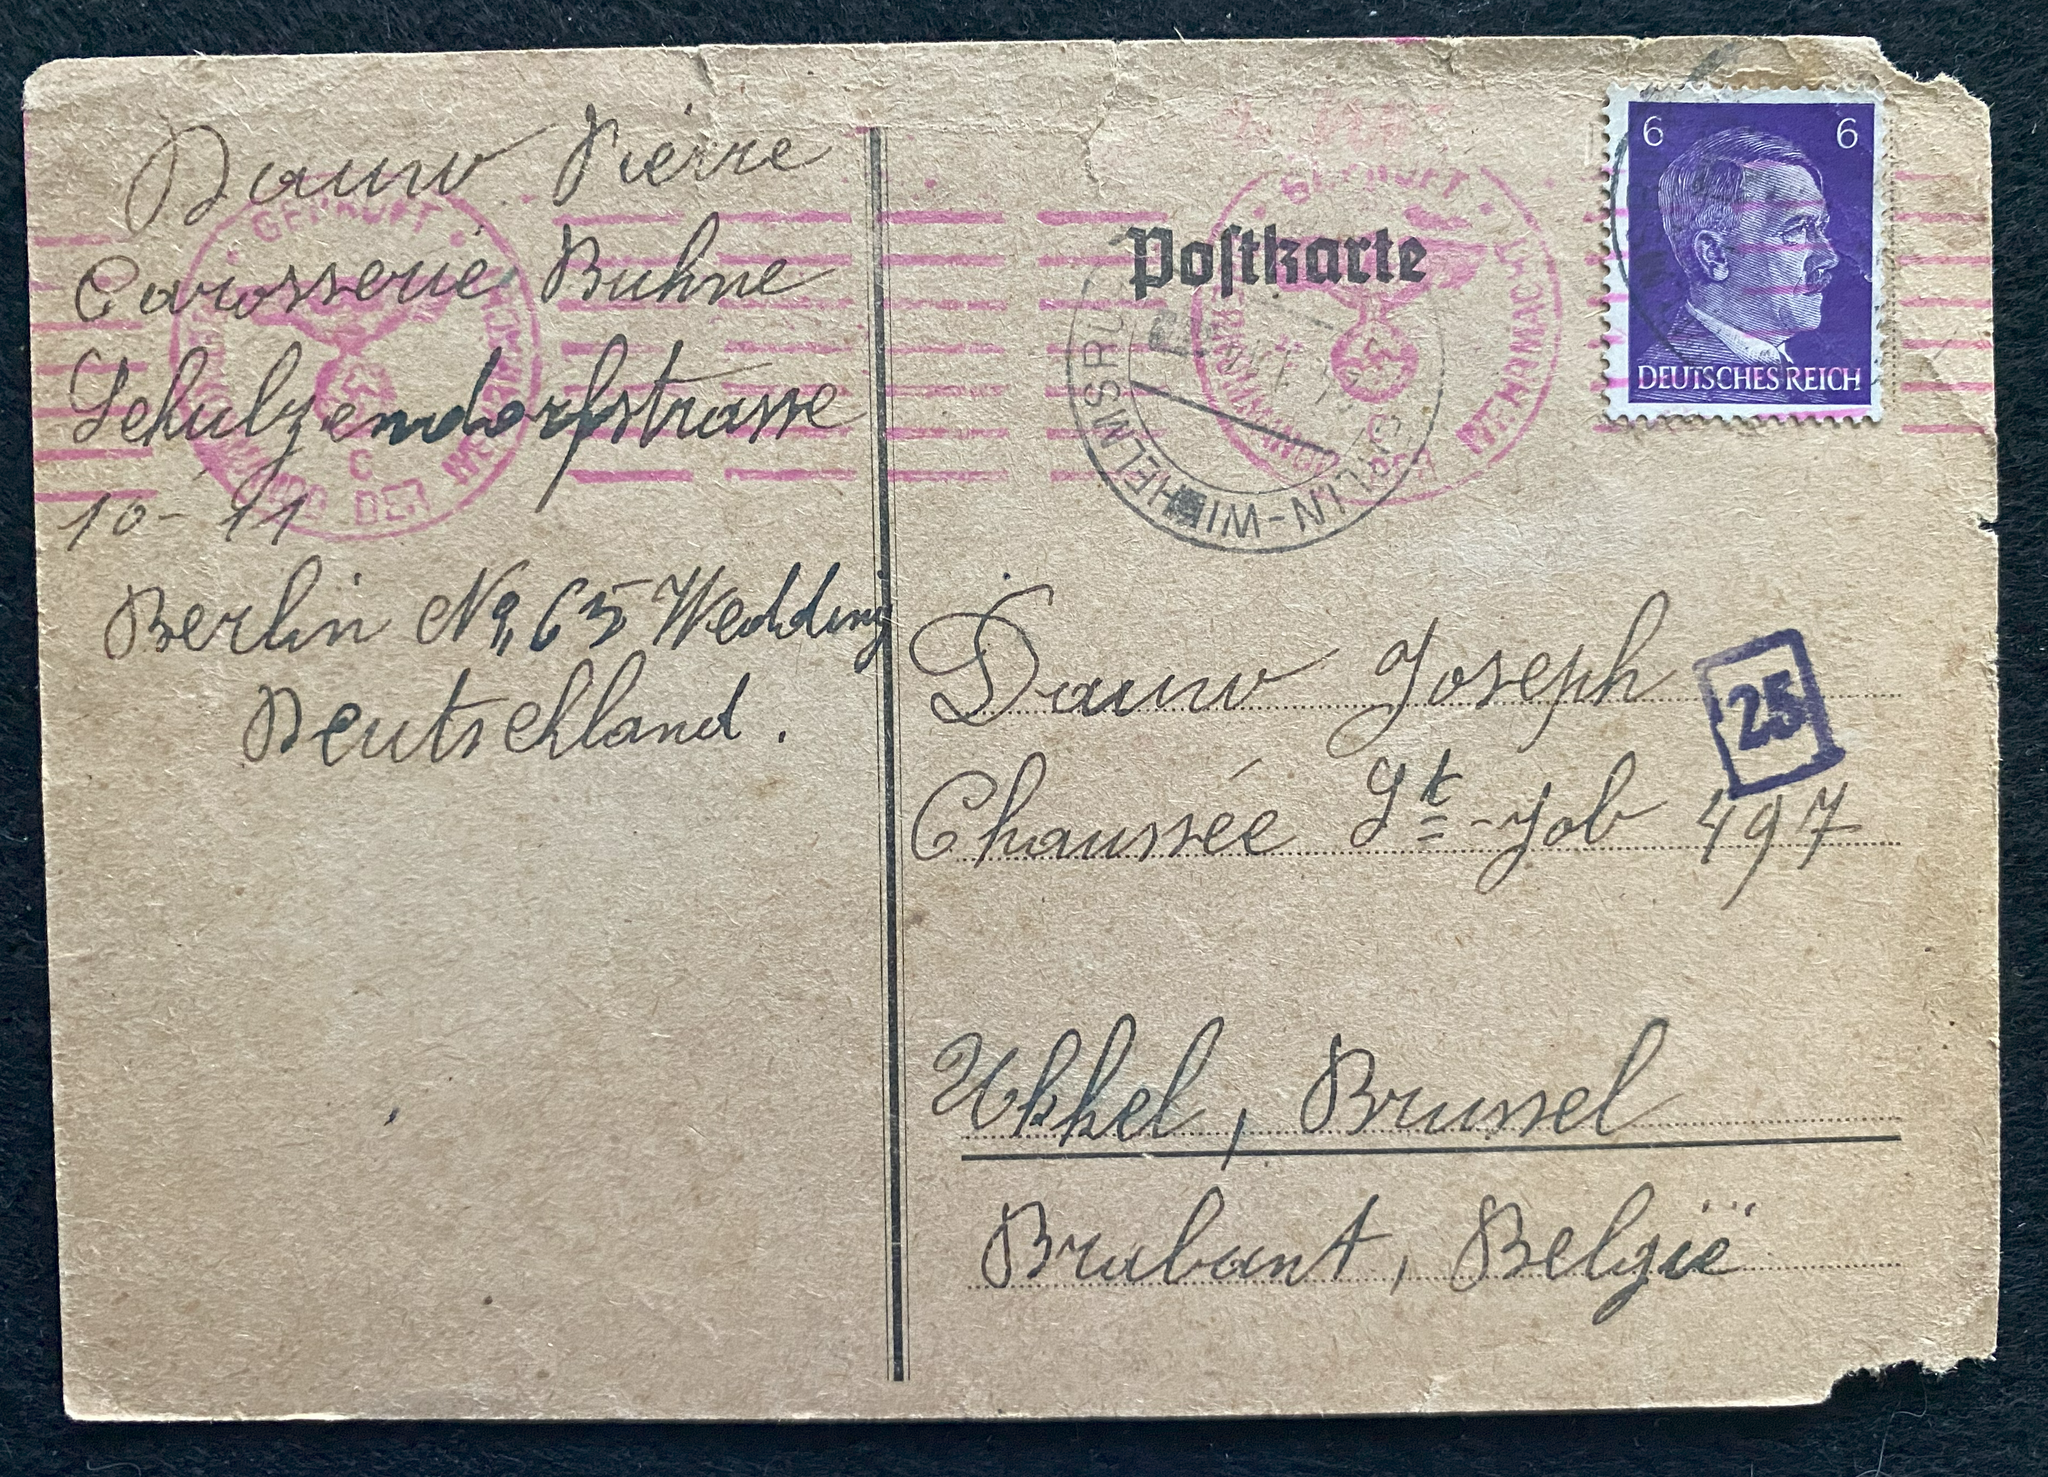 Dauw Pierre
Carosserie Buhne
Schulzendorfstrasse
10-11
Berlin No, 65 Wedding
Deutschland.
GEPRÜFT
OBERKOMMANDO DER WEHRMACHT
C
Postkarte
GEPRÜFT
OBERKOMMANDO DER WEHRMACHT
BERLIN-WILHELMSRUH
6 6
DEUTSCHES REICH
25
Dauw Joseph
Chaussée St-Job 497
Ukkel, Brussel
Brabant, Belgïe